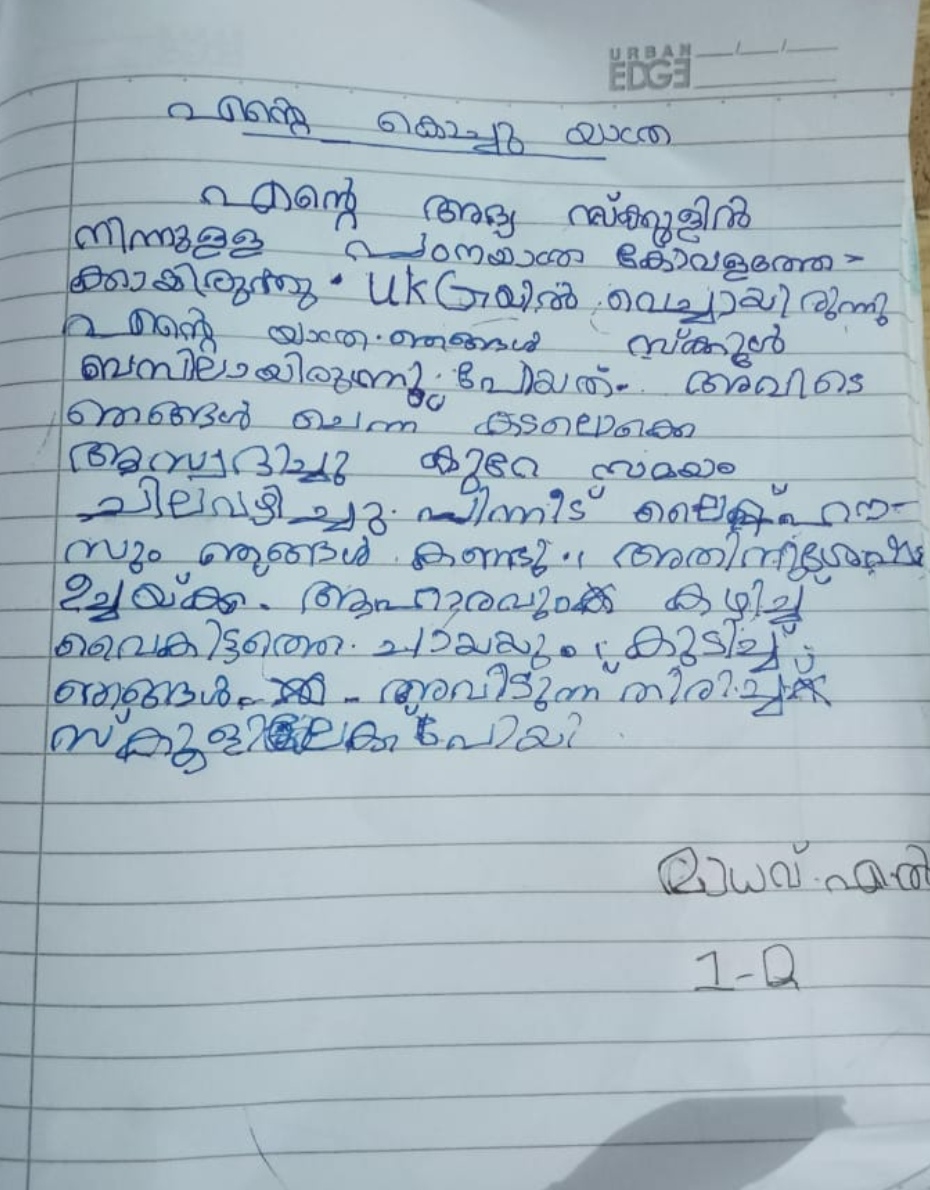 URBAN
EDGE
എന്റെ കൊച്ചു യാത്ര
എന്റെ ആദ്യ സ്ക്കൂളിൽ
നിന്നുള്ള പഠനയാത്ര കോവളത്തേ-
ക്കായിരുന്നു. UKG യിൽ വെച്ചായിരുന്നു
എന്റെ യാത്ര. ഞങ്ങൾ സ്ക്കൂൾ
ബസിലായിരുന്നു പോയത്. അവിടെ
ഞങ്ങൾ ചെന്ന കടലൊക്കെ
ആസ്വദിച്ചു കുറേ സമയം
ചിലവഴിച്ചു. പിന്നീട് ലൈറ്റ് ഹൗ-
സും ഞങ്ങൾ കണ്ടു. അതിനുശേഷം
ഉച്ചയ്ക്ക ആഹാരവും കഴിച്ച്
വൈകിട്ടത്തെ ചായയും കുടിച്ച്
ഞങ്ങൾ അവിടുന്ന് തിരിച്ച്
സ്കൂളിലേക്ക പോയി
മാധവ് എൽ
1-Q